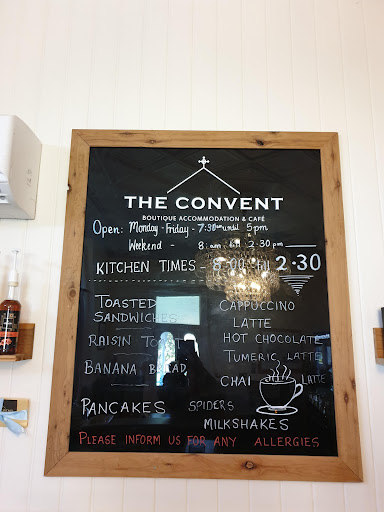 THE CONVENT
BOUTIQUE ACCOMMODATION & CAFÉ
Open: Monday - Friday - 7:30am until 5pm
Weekend - 8:am till 2.30pm
KITCHEN TIMES - 8:00 till 2.30
TOASTED SANDWICHES
RAISIN TOAST
BANANA BREAD
PANCAKES
CAPPUCCINO
LATTE
HOT CHOCOLATE
TUMERIC LATTE
CHAI LATTE
SPIDERS
MILKSHAKES
PLEASE INFORM US FOR ANY ALLERGIES